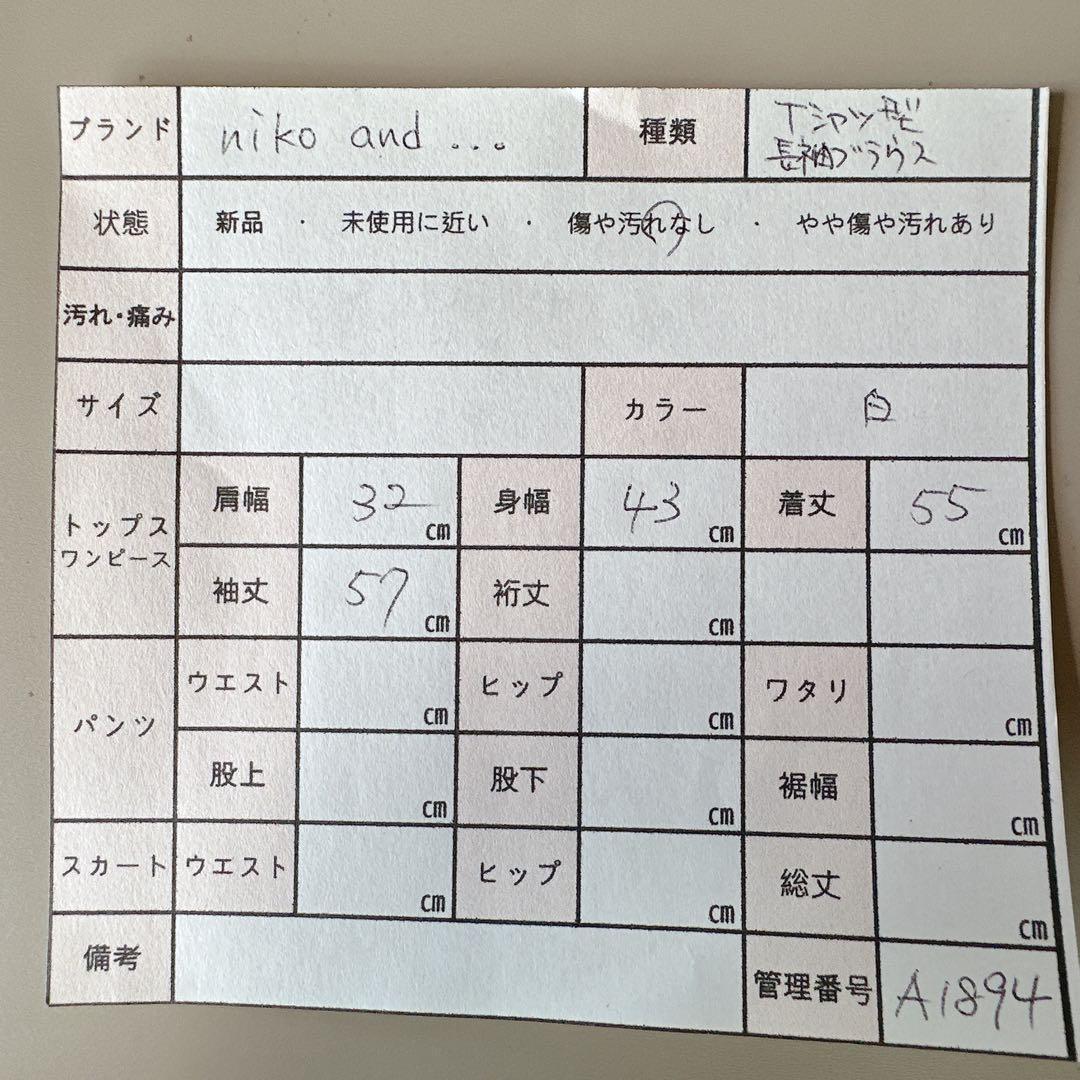 ブランド niko and ... 種類 Tシャツ型
長袖ブラウス
状態 新品 ・ 未使用に近い ・ 傷や汚れなし ・ やや傷や汚れあり
汚れ・痛み
サイズ カラー 白
トップス
ワンピース
肩幅 32 cm 身幅 43 cm 着丈 55 cm
袖丈 57 cm 裄丈 cm
パンツ
ウエスト cm ヒップ cm ワタリ cm
股上 cm 股下 cm 裾幅 cm
スカート ウエスト cm ヒップ cm 総丈 cm
備考 管理番号 A1894